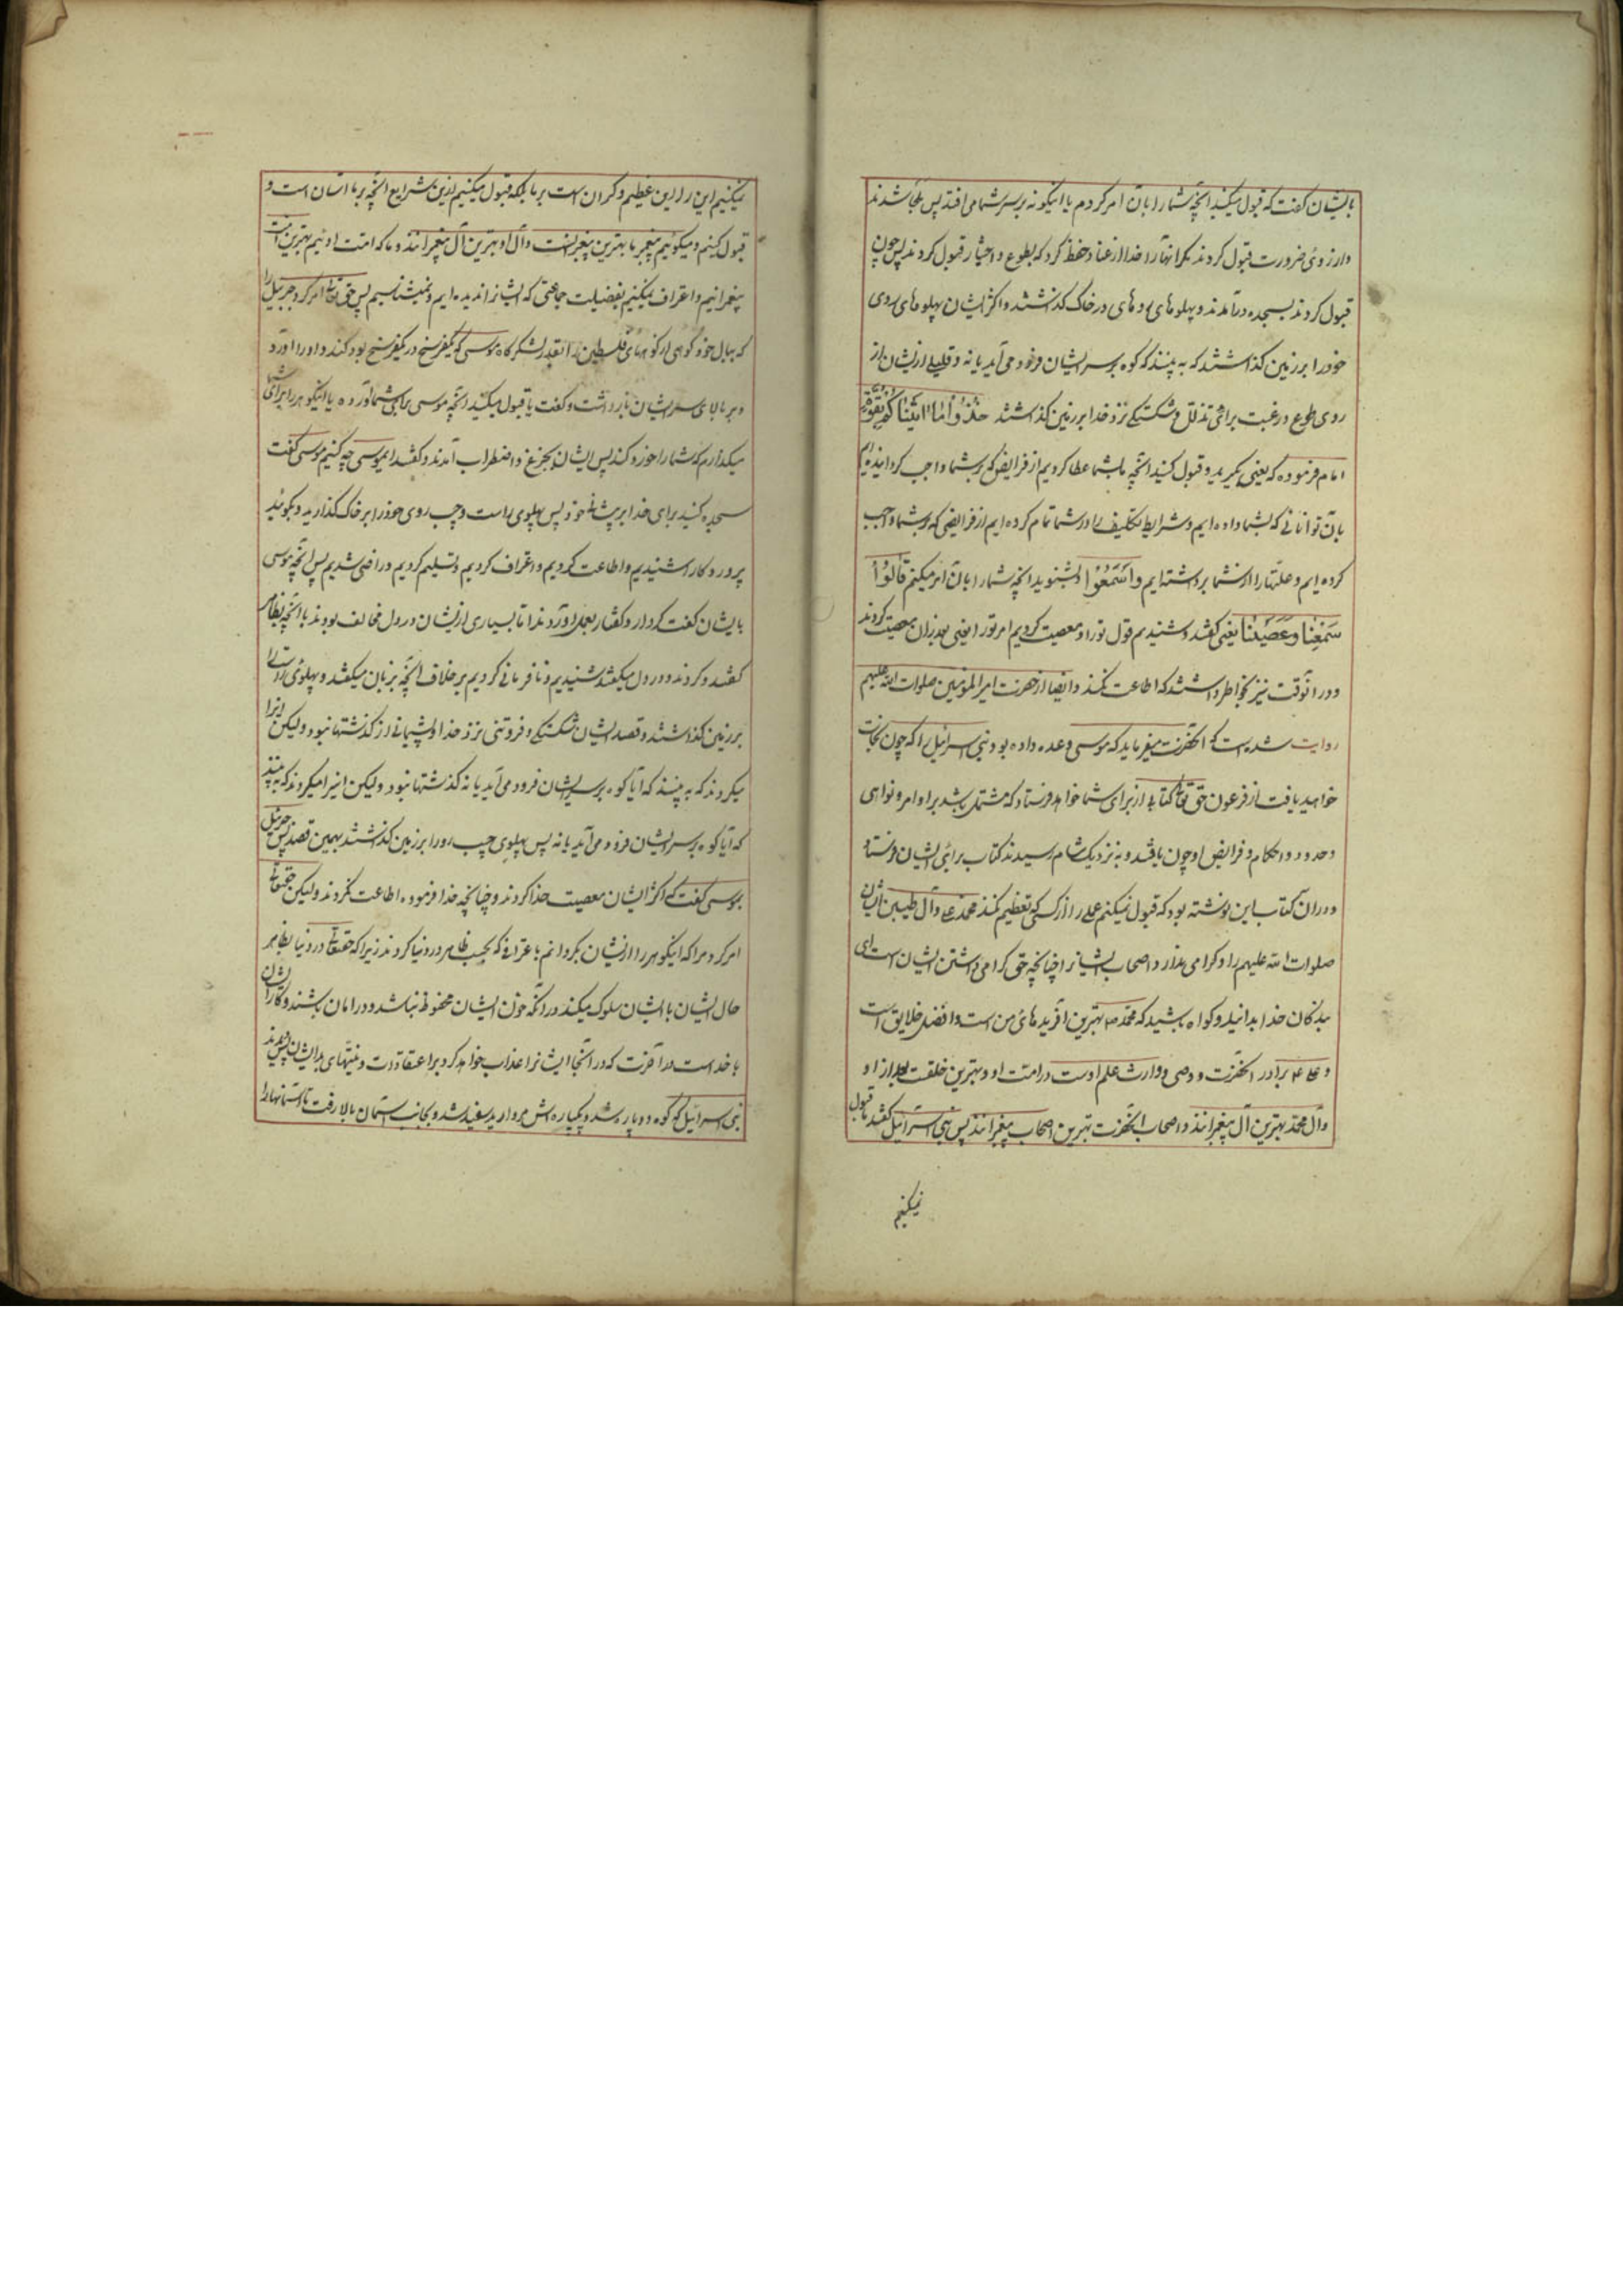 بایشان گفت که قبول میکنید آنچه شما را بآن امر کردم یا اینکوه بر سر شما می افتد پس ملجأ شدند
و از روی ضرورت قبول کردند مکر آنها را خدا از عناد حفظ کرد که بطوع و اختیار قبول کردند پس چون
قبول کردند بسجده درآمدند و پهلوهای روهای در خاک گذاشتند و اکثر ایشان پهلوهای روی
خود را بر زمین گذاشتند که به بینند که کوه بر سر ایشان فرود می آید یا نه و قلیلی از ایشان از
روی طوع و رغبت برای تذلل و شکستگی نزد خدا بر زمین گذاشتند خُذُوا مٰا اٰتَیْنٰاکُمْ بِقُوَّةٍ
امام فرموده که یعنی بگیرید و قبول کنید آنچه ما بشما عطا کردیم از فرایض که بر شما واجب گردانیده ایم
بآن توانائی که بشما داده ایم و شرایط تکلیف را در شما تمام کرده ایم از فرایضی که بر شما واجب
کرده ایم و علّتها را از شما برداشته ایم وَاسْمَعُوْا و بشنوید آنچه شما را بآن امر میکنم قٰالُوْا
سَمِعْنٰا وَعَصَیْنٰا یعنی گفتند و شنیدیم قول تو را و معصیت کردیم امر تو را یعنی بعد از آن معصیت کردند
و در آنوقت نیز بخاطر داشتند که اطاعت نکنند و ایضا از حضرت امیر المؤمنین صلوات الله علیهم
روایت شده است که آنحضرت میفرماید که موسی وعده داده بود بنی اسرائیل را که چون نجات
خواهید یافت از فرعون حق تعالی کتابی از برای شما خواهد فرستاد که مشتمل باشد بر اوامر و نواهی
و حدود و احکام و فرایض او چون یافتند و به نزدیک شام رسیدند کتاب برای ایشان فرستاد
و در آن کتاب این نوشته بود که قبول نمیکنم عملی را از کسی که تعظیم نکند محمد و علی و آل طیبین ایشان
صلوات الله علیهم را و گرامی ندارد اصحاب ایشانرا چنانچه حق گرامی داشتن ایشان است ای
بندگان خدا بدانید و گواه باشید که محمد ص بهترین آفریدهای من است و افضل خلایق است
و علی ع برادر آنحضرت و وصی و وارث علم اوست در امت او و بهترین خلقت بعد از او
و آل محمد بهترین آل پیغمبرانند و اصحاب آنحضرت بهترین اصحاب پیغمبرانند پس بنی اسرائیل گفتند ما قبول
نمیکنیم
نمیکنیم این را این عظیم و گران است بر ما بلکه قبول میکنیم ازین شرایع آنچه بر ما آسان است و
قبول کنیم و میگوئیم پیغمبر ما بهترین پیغمبرانست و آل او بهترین آل پیغمبرانند و ما که امت اوئیم بهترین امت
پیغمبرانیم و اعتراف نمیکنیم بفضیلت جماعتی که ایشانرا ندیده ایم و نمیشناسیم پس حق تعالی امر کرد جبرئیل را
که ببال خود کوهی از کوههای فلسطین را بقدر لشکرگاه موسی که یکفرسخ در یکفرسخ بود کند و او را آورد
و بر بالای سر ایشان بازداشت و گفت یا قبول میکنید آنچه موسی برای شما آورده یا اینکوه را بر بالای شما
میگذارم که شما را خورد کند پس ایشان بجزع و اضطراب آمدند و گفتند ایموسی چه کنیم موسی گفت
سجده کنید برای خدا بر پیشانی خود پس پهلوی راست و چپ روی خود را بر خاک گذارید و بگوئید
پروردگارا شنیدیم و اطاعت کردیم و اعتراف کردیم و تسلیم کردیم و راضی شدیم پس آنچه موسی
بایشان گفت کردار و گفتار بعمل آوردند اما بسیاری از ایشان در دل مخالف بودند با آنچه بظاهر
گفتند و کردند و در دل میگفتند شنیدیم و نافرمانی کردیم بر خلاف آنچه بزبان میگفتند و پهلوی راست را
بر زمین گذاشتند و قصد ایشان شکستگی و فروتنی نزد خدا و پشیمانی از گذشتها نبود و لیکن اینرا
میکردند که به بینند که آیا کوه بر سر ایشان فرود می آید یا نه گذشتها نبود و لیکن اینرا میکردند که به بینند
که آیا کوه بر سر ایشان فرود می آید یا نه پس پهلوی چپ رو را بر زمین گذاشتند بهمین قصد پس جبرئیل
بموسی گفت که اکثر ایشان معصیت خدا کردند و چنانچه خدا فرموده اطاعت نکردند و لیکن حقتعالی
امر کرد مرا که اینکوه را از ایشان بگردانم باعترافی که بحسب ظاهر در دنیا کردند زیرا که حقتعالی در دنیا بظاهر
حال ایشان با ایشان سلوک میکند در آنکه خون ایشان محفوظ باشد و در امان باشند و کار ایشان
با خداست در آخرت که در آنجا ایشانرا عذاب خواهد کرد بر اعتقادات و نیتهای بد ایشان پس دیدند
بنی اسرائیل که کوه دو پاره شد و یکپاره اش مروارید سفید شد و بجانب آسمان بالا رفت تا آسمانها را